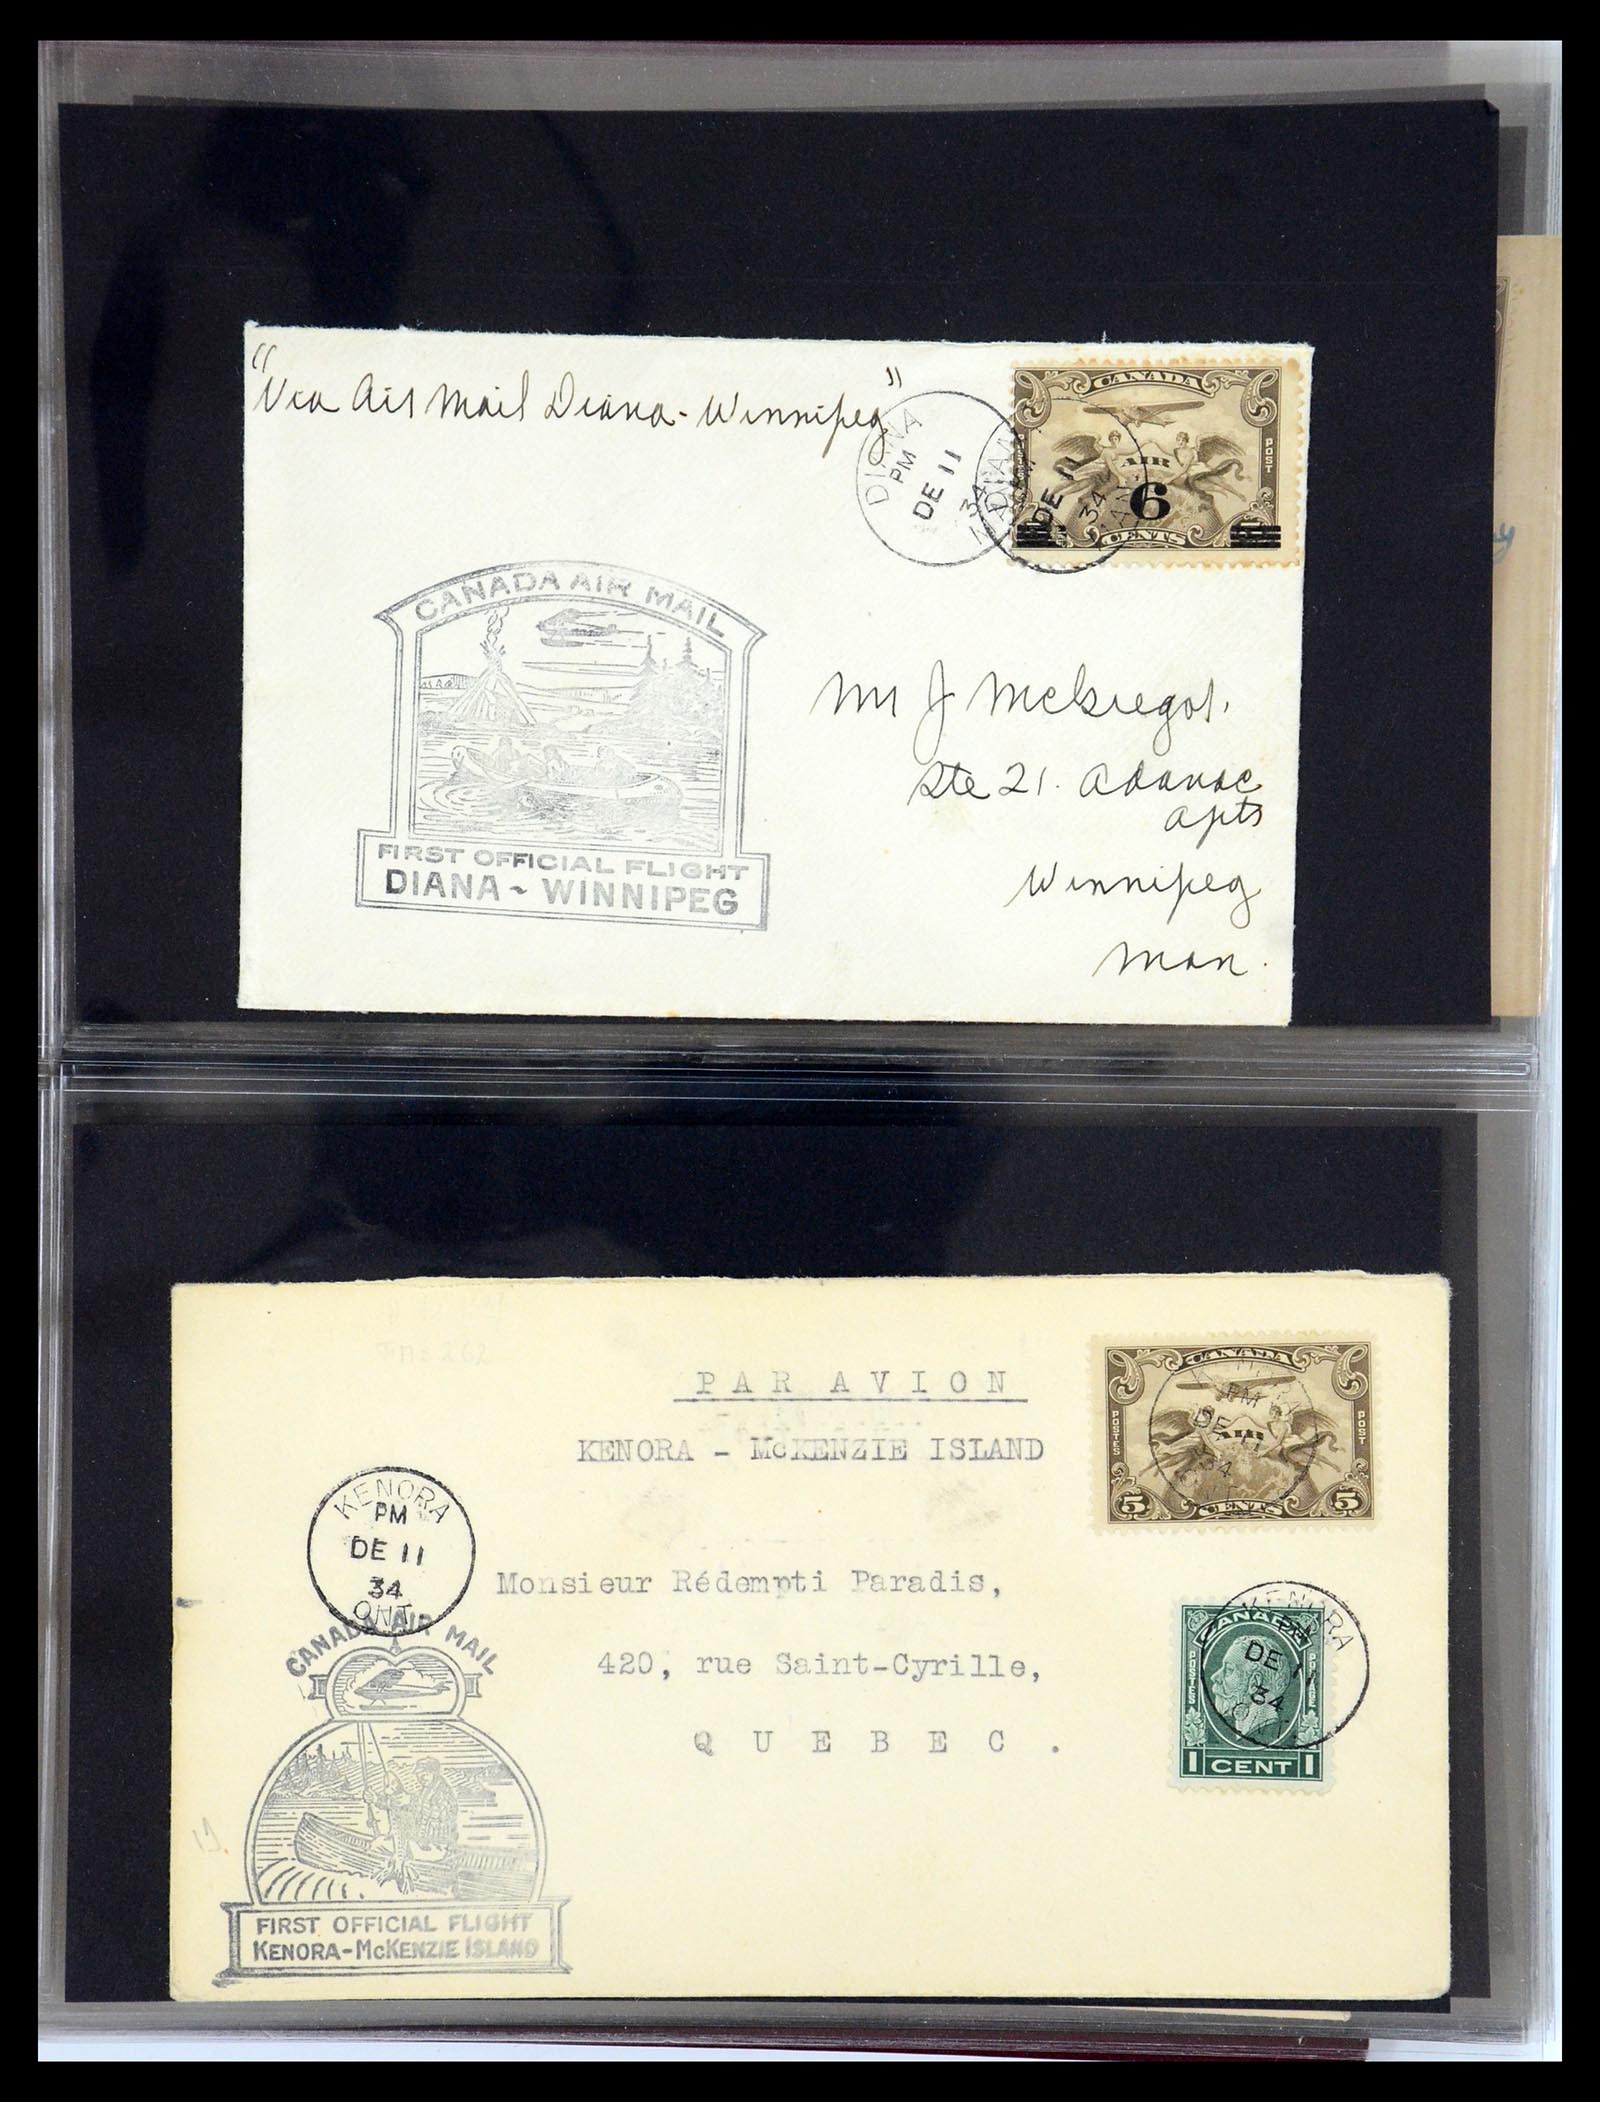 "Via Air Mail Diana - Winnipeg"
DIANA
PM
DE 11
34
MAN
DE 11
34
CANADA
POSTES
POST
AIR
6
CENTS
CANADA AIR MAIL
FIRST OFFICIAL FLIGHT
DIANA ~ WINNIPEG
Mr J McGregor.
Ste 21. Adanac
Apts
Winnipeg
Man.
PAR AVION
KENORA - McKENZIE ISLAND
CANADA
POSTES
POST
AIR
5 CENTS 5
PM
DE 11
34
ONT.
KENORA
PM
DE 11
34
ONT.
Monsieur Rédempti Paradis,
420, rue Saint-Cyrille,
QUEBEC.
KENORA
PM
DE 11
34
ONT.
CANADA
POSTES
POSTAGE
1 CENT 1
CANADA AIR MAIL
FIRST OFFICIAL FLIGHT
KENORA-McKENZIE ISLAND